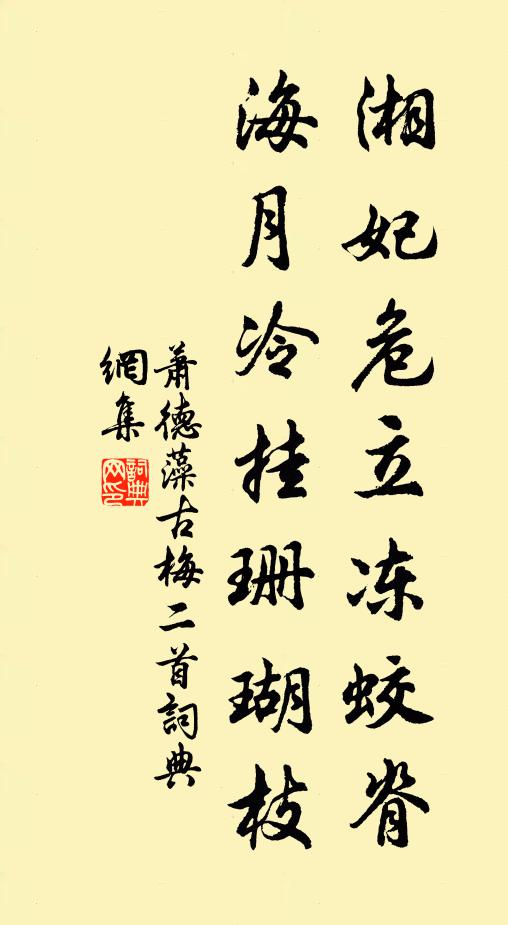 湘妃危立冻蛟脊
海月冷挂珊瑚枝
蕭德藻古梅二首詞典
網集
詞典网印